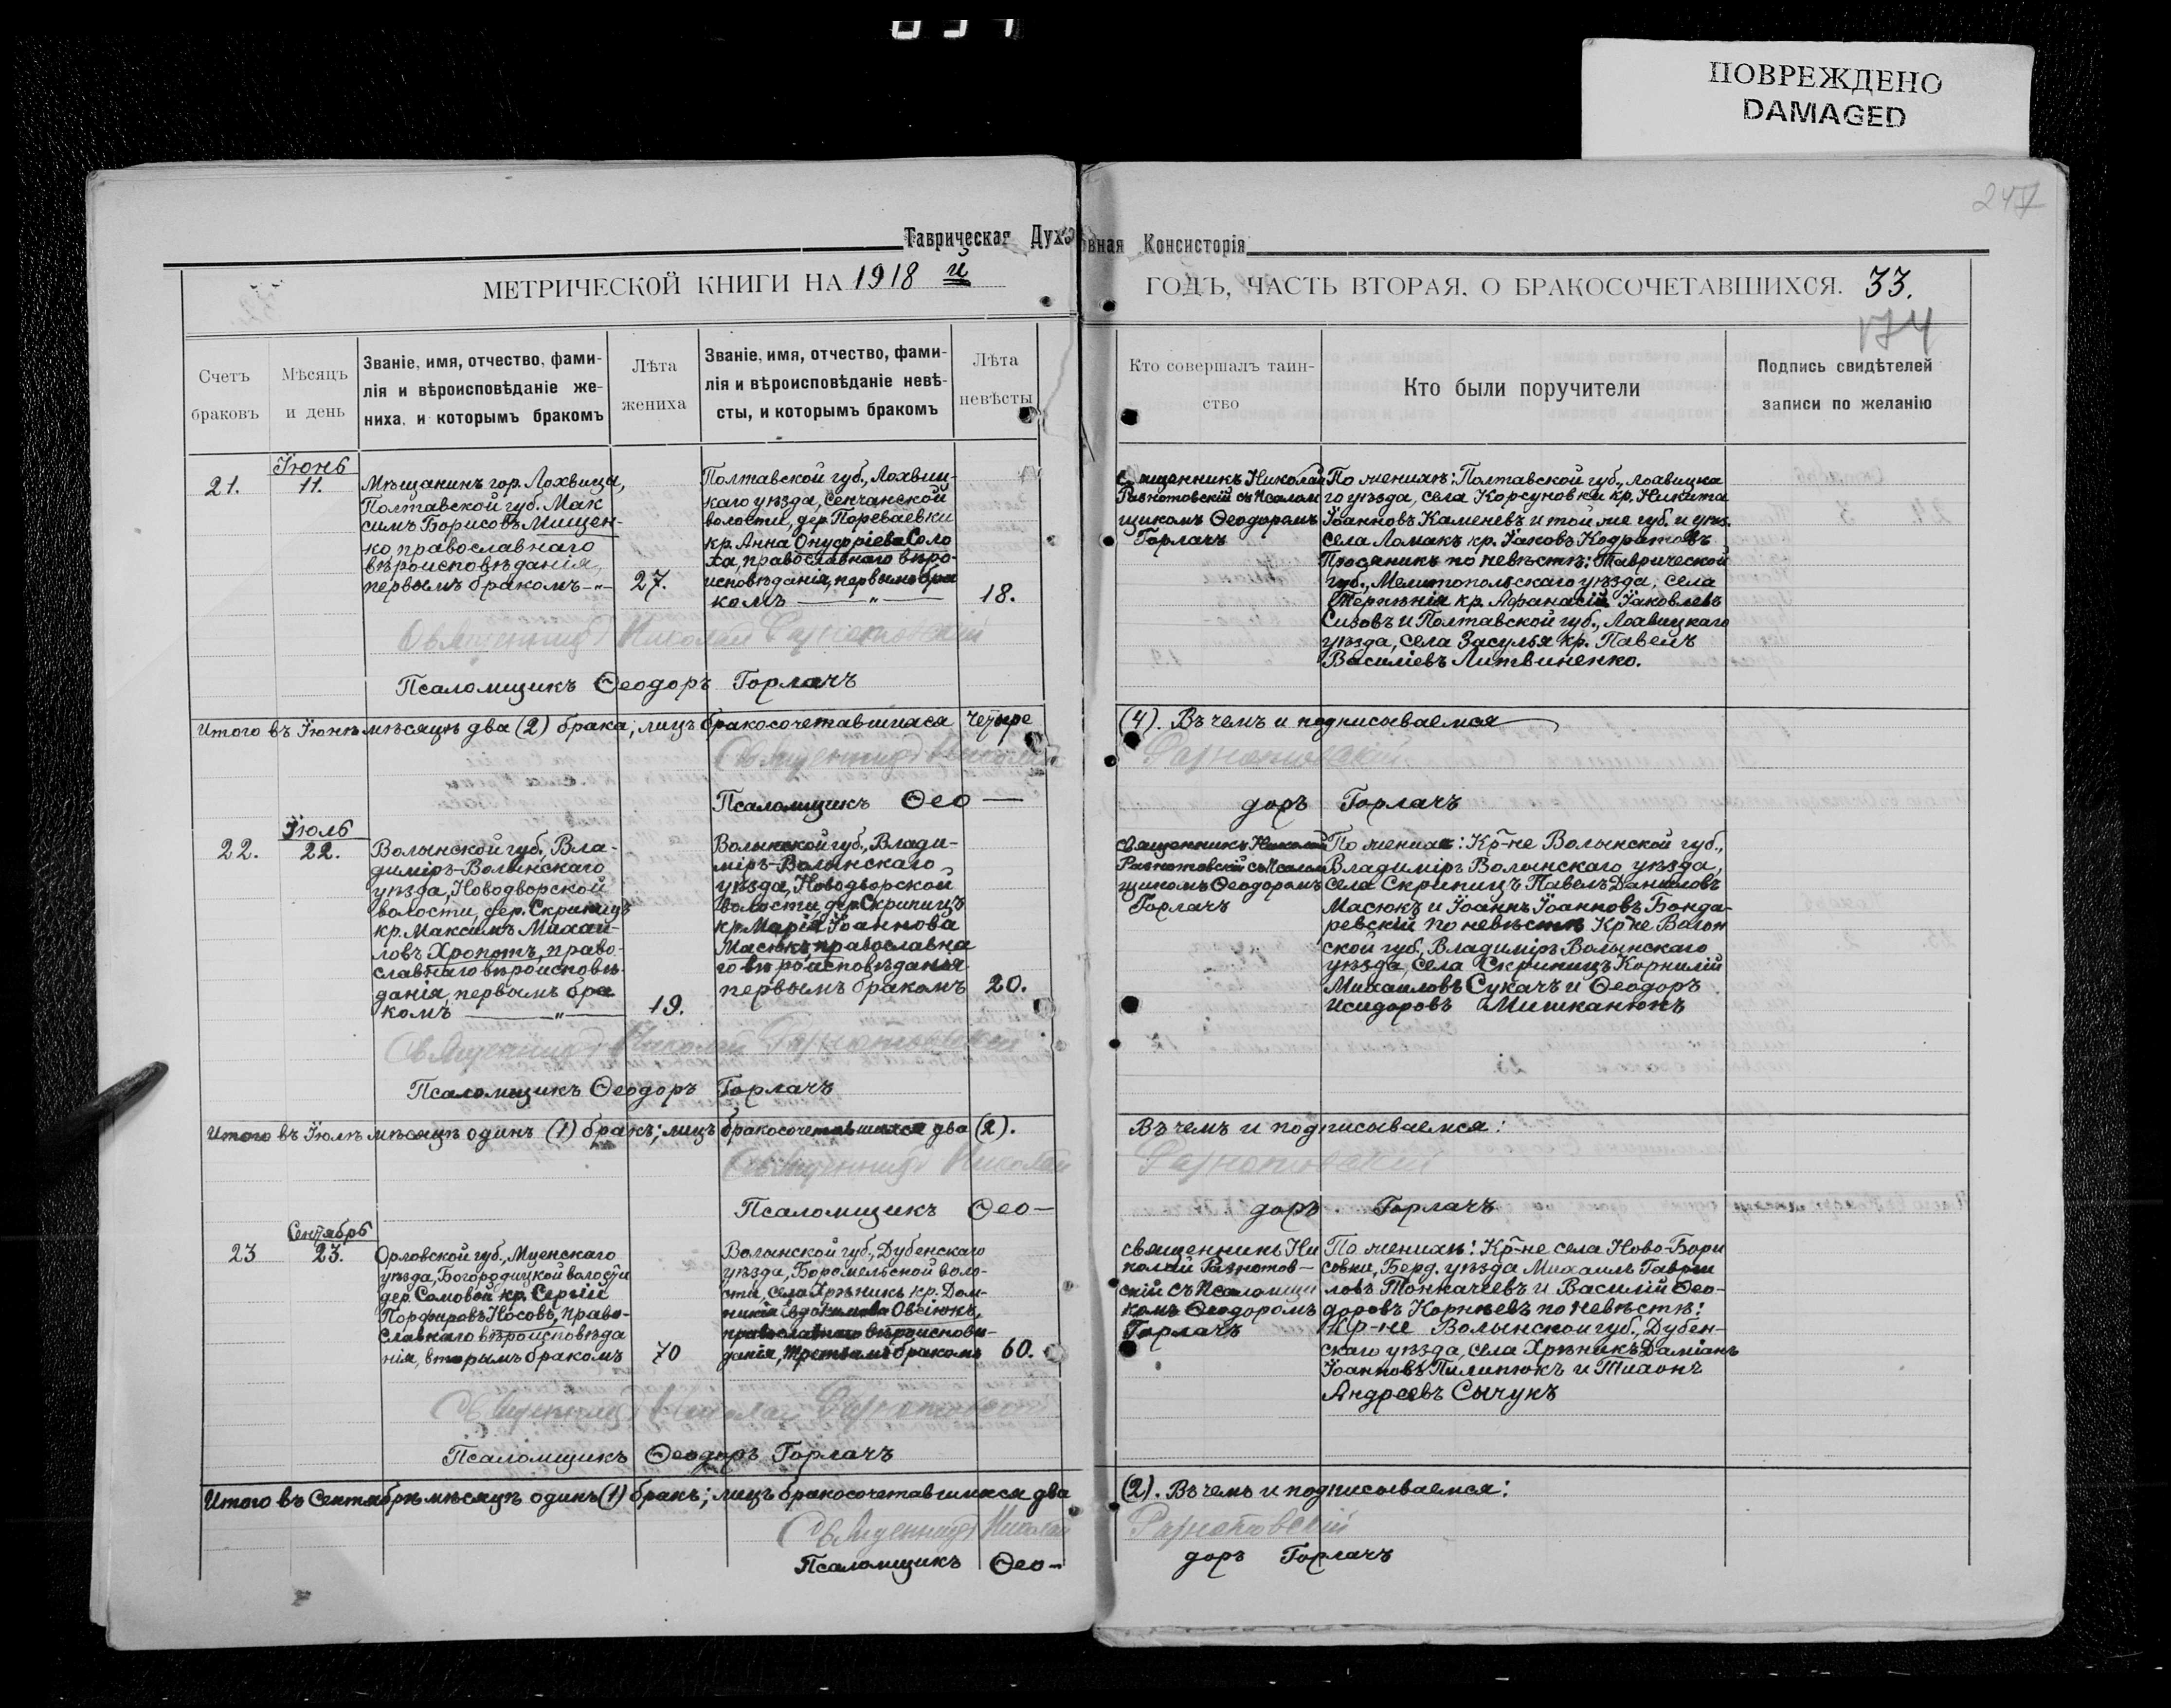 ПОВРЕЖДЕНО
DAMAGED
247
Таврическая Духовная Консисторія
МЕТРИЧЕСКОЙ КНИГИ НА 1918 й
ГОДЪ, ЧАСТЬ ВТОРАЯ, О БРАКОСОЧЕТАВШИХСЯ. 33.
174
Счетъ
браковъ
Мѣсяцъ
и день
Званіе, имя, отчество, фами-
лія и вѣроисповѣданіе же-
ниха, и которымъ бракомъ
Лѣта
жениха
Званіе, имя, отчество, фами-
лія и вѣроисповѣданіе невѣ-
сты, и которымъ бракомъ
Лѣта
невѣсты
Кто совершалъ таин-
ство
Кто были поручители
Подпись свидѣтелей
записи по желанію
21.
Іюнь
11.
Мѣщанинъ гор. Лохвица,
Полтавской губ. Мак
симъ Борисовъ Мищен-
ко, православнаго
вѣроисповѣданія,
первымъ бракомъ -„-
27.
Полтавской губ., Лохвиц-
каго уѣзда, Сенчанской
волости, дер. Пореваевки
кр. Анна Онуфріева Соло
ха, православнаго вѣро-
исповѣданія, первымъ бра
комъ — „ —
18.
Священникъ Николай
Разнотовскій съ Псалом
щикомъ Ѳеодоромъ
Горлачъ
По женихѣ: Полтавской губ., Лохвицка
го уѣзда, села Корсуновки кр. Никита
Іоанновъ Каменевъ и той же губ. и уѣз.
села Ломакъ кр. Іаковъ Кодратовъ
Просяникъ по невѣстѣ: Таврической
губ., Мелитопольскаго уѣзда, села
Терпѣнія кр. Афанасій Іаковлевъ
Сизовъ и Полтавской губ., Лохвицкаго
уѣзда, села Засулья кр. Павелъ
Василіевъ Литвиненко.
Священникъ Николай Разнотовскій
Псаломщикъ Ѳеодоръ Горлачъ
Итого въ Іюнѣ мѣсяцѣ два (2) брака; лицъ бракосочетавшихся четыре
(4). Въ чемъ и подписываемся
Священникъ Николай
Разнотовскій
Псаломщикъ Ѳео —
доръ Горлачъ
22.
Іюль
22.
Волынской губ., Вла-
димір-Волынскаго
уѣзда, Новодворской
волости, дер. Скрипицъ
кр. Максимъ Михаи-
ловъ Хропотъ, право-
славнаго вѣроисповѣ-
данія, первымъ бра
комъ — „ —
19.
Волынской губ., Влади-
міръ-Волынскаго
уѣзда, Новодворской
волости дер. Скрипицъ
кр. Марія Іоаннова
Масюкъ, православна
го вѣроисповѣданія
первымъ бракомъ
20.
священникъ Николай
Разнотовскій съ Псалом
щикомъ Ѳеодоромъ
Горлачъ
По женихѣ: Кр-не Волынской губ.,
Владиміръ Волынскаго уѣзда,
села Скрипицъ Павелъ Даниловъ
Масюкъ и Іоаннъ Іоанновъ Бонда-
ревскій по невѣстѣ Кр-не Волын
ской губ., Владиміръ Волынскаго
уѣзда, села Скрипицъ Корнилій
Михаиловъ Сукачъ и Ѳеодоръ
Исидоровъ Мишканюкъ
Священникъ Николай Разнотовскій
Псаломщикъ Ѳеодоръ Горлачъ
Итого въ Іюлѣ мѣсяцѣ одинъ (1) бракъ; лицъ бракосочетавшихся два (2).
Въ чемъ и подписываемся:
Священникъ Николай
Разнотовскій
Псаломщикъ Ѳео —
доръ Горлачъ
23
Сентябрь
23.
Орловской губ., Мценскаго
уѣзда, Богородицкой волости
дер. Сомовой кр. Сергій
Порфировъ Носовъ, право-
славнаго вѣроисповѣда
нія, вторымъ бракомъ
70
Волынской губ., Дубенскаго
уѣзда, Боремельской воло-
сти, села Хрѣникъ кр. Дом-
никія Евдокимова Овсіюкъ,
православнаго вѣроисповѣ-
данія, третьимъ бракомъ
60.
священникъ Ни
колай Разнотов-
скій съ Псаломщи
комъ Ѳеодоромъ
Горлачъ
По женихѣ: Кр-не села Ново-Бори
совки, Берд. уѣзда Михаилъ Гаври
ловъ Тонкачеевъ и Василій Ѳео-
доровъ Корнѣевъ по невѣстѣ:
Кр-не Волынской губ., Дубен-
скаго уѣзда, села Хрѣникъ Даміанъ
Іоанновъ Пилипюкъ и Тихонъ
Андреевъ Сычукъ
Священникъ Николай Разнотовскій
Псаломщикъ Ѳеодоръ Горлачъ
Итого въ Сентябрѣ мѣсяцѣ одинъ (1) бракъ; лицъ бракосочетавшихся два
(2). Въ чемъ и подписываемся:
Священникъ Николай
Разнотовскій
Псаломщикъ Ѳео-
доръ Горлачъ